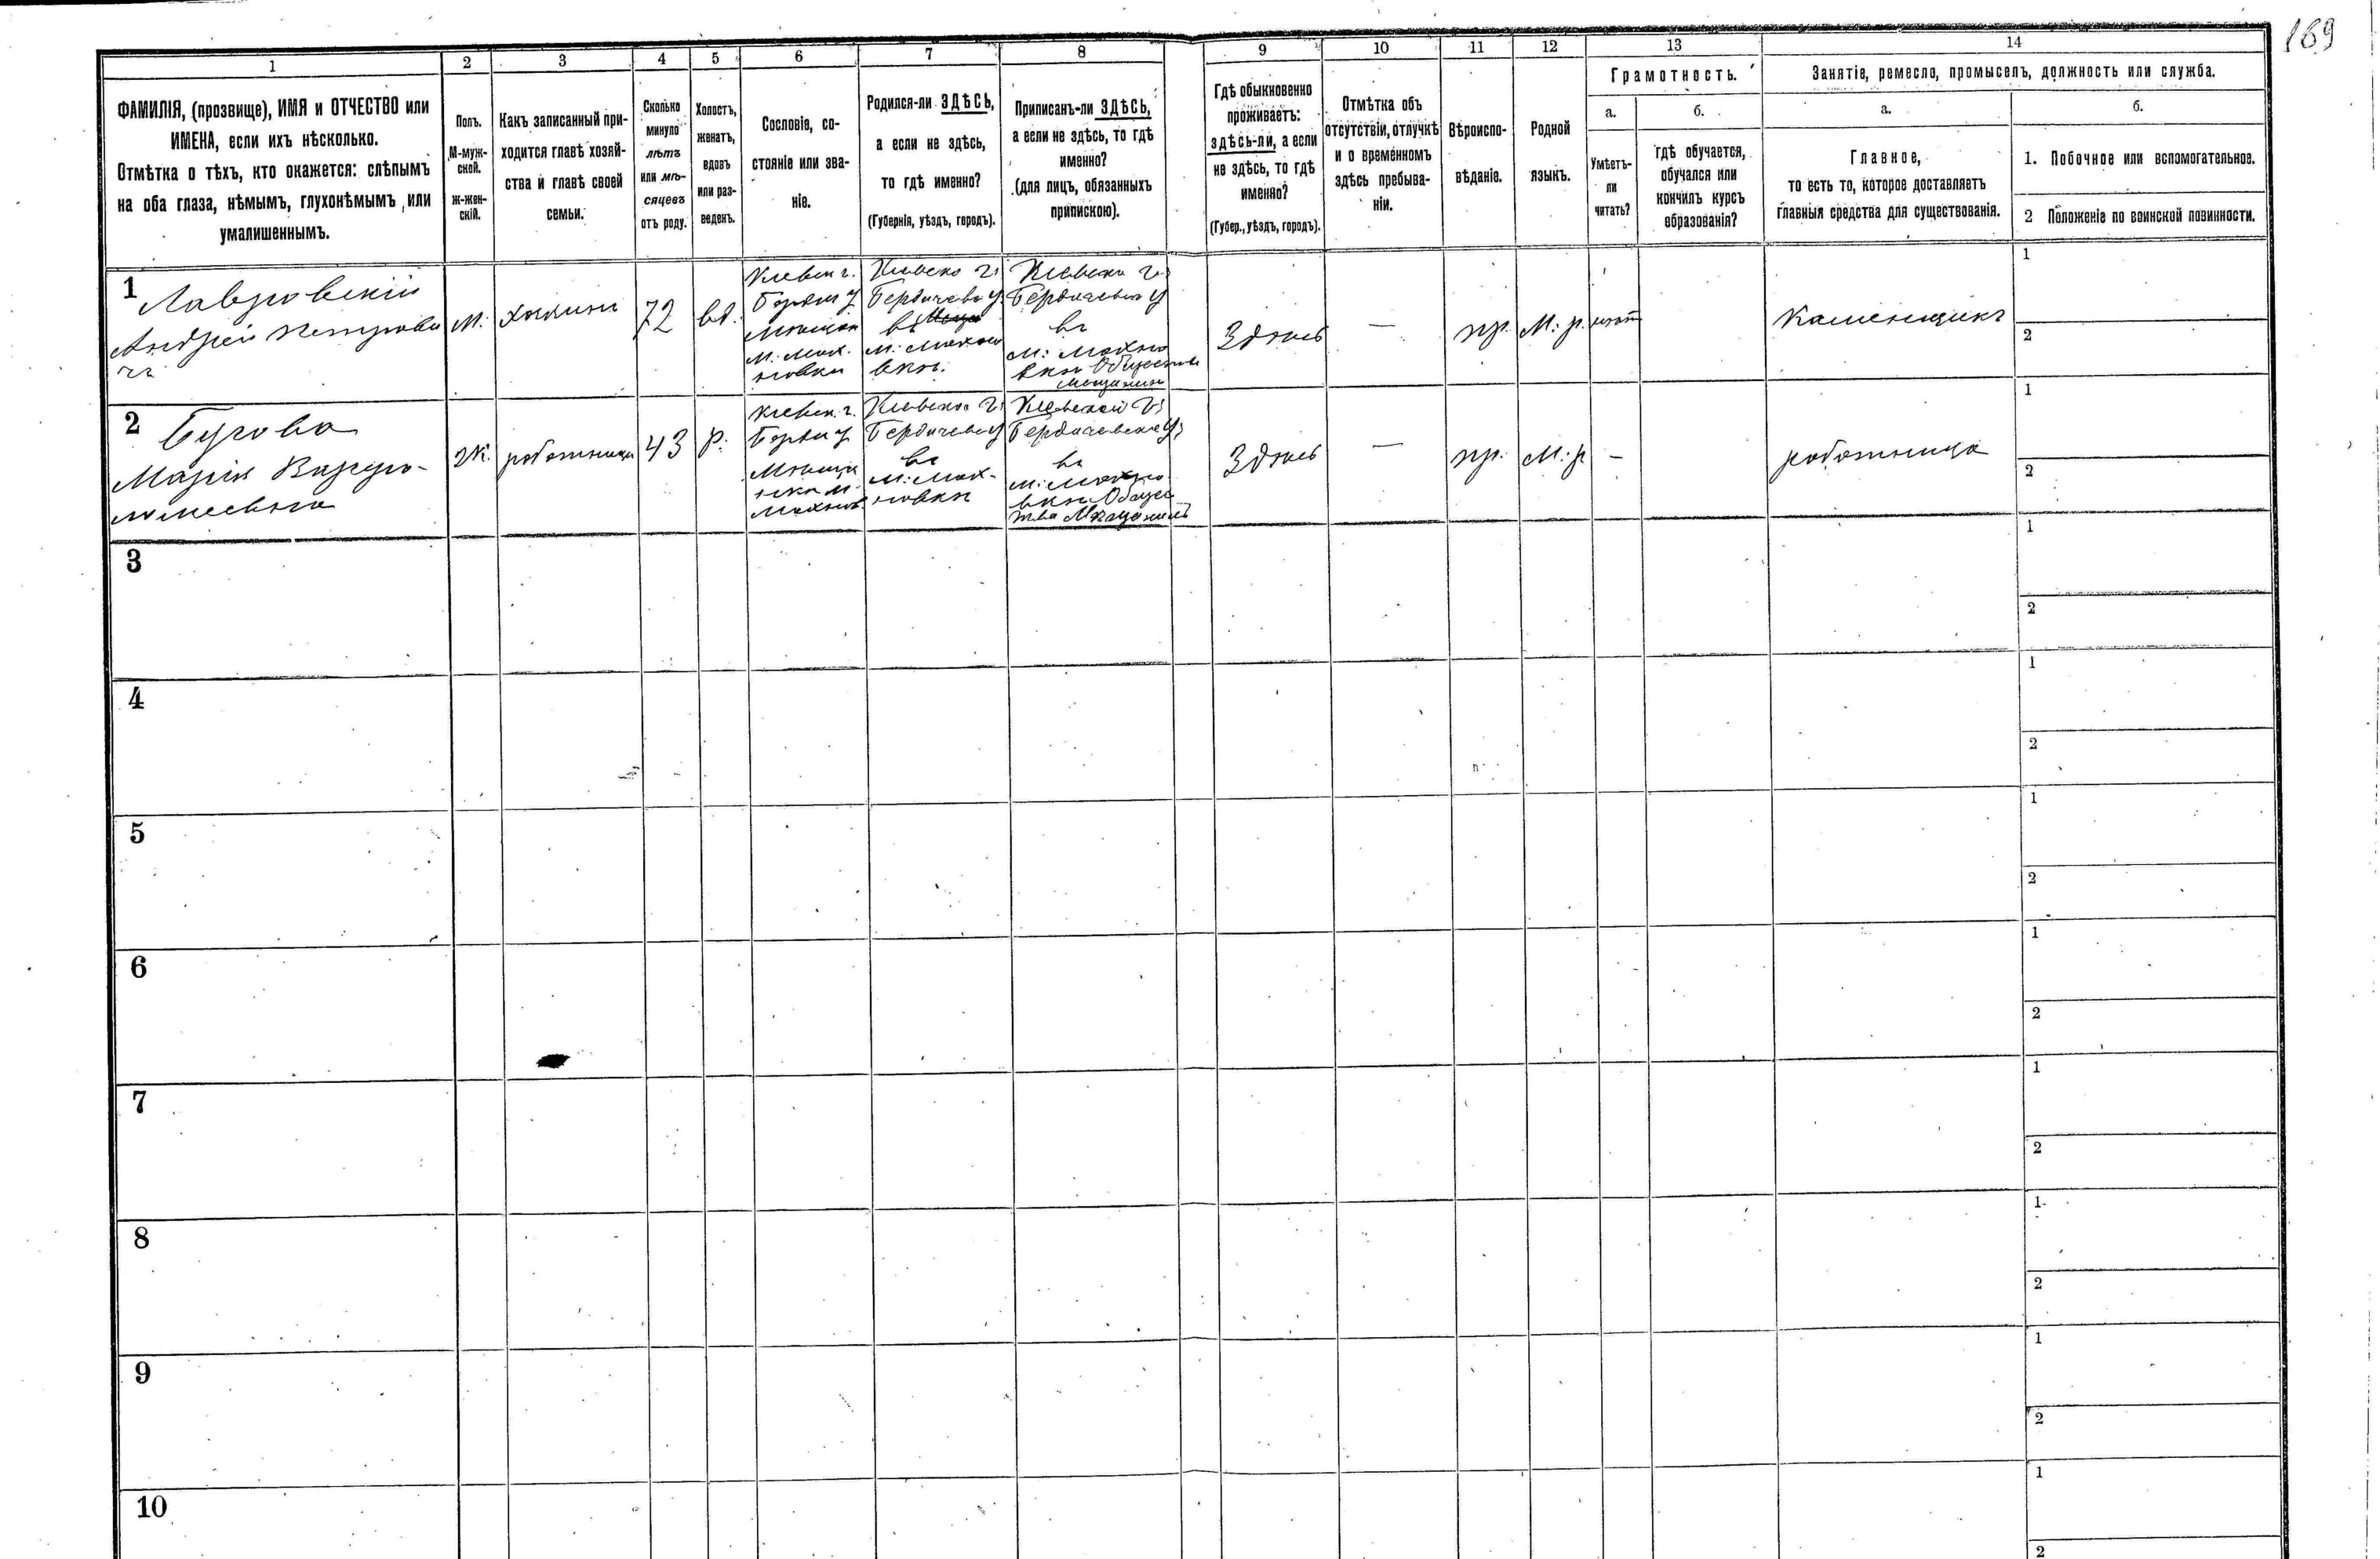 169
1 2 3 4 5 6 7 8 9 10 11 12 13 14
ФАМИЛІЯ, (прозвище), ИМЯ и ОТЧЕСТВО или
ИМЕНА, если ихъ нѣсколько.
Отмѣтка о тѣхъ, кто окажется: слѣпымъ
на оба глаза, нѣмымъ, глухонѣмымъ, или
умалишеннымъ.
Полъ.
М-муж-
ской.
ж-жен-
скій.
Какъ записанный при-
ходится главѣ хозяй-
ства и главѣ своей
семьи.
Сколько
минуло
лѣтъ
или мѣ-
сяцевъ
отъ роду.
Холостъ,
женатъ,
вдовъ
или раз-
веденъ.
Сословіе, со-
стояніе или зва-
ніе.
Родился-ли ЗДѢСЬ,
а если не здѣсь,
то гдѣ именно?
(Губернія, уѣздъ, городъ).
Приписанъ-ли ЗДѢСЬ,
а если не здѣсь, то гдѣ
именно?
(для лицъ, обязанныхъ
припискою).
Гдѣ обыкновенно
проживаетъ:
здѣсь-ли, а если
не здѣсь, то гдѣ
именно?
(Губер., уѣздъ, городъ).
Отмѣтка объ
отсутствіи, отлучкѣ
и о временномъ
здѣсь пребыва-
ніи.
Вѣроиспо-
вѣданіе.
Родной
языкъ.
Грамотность.
а.
Умѣетъ-
ли
читать?
б.
гдѣ обучается,
обучался или
кончилъ курсъ
образованія?
Занятіе, ремесло, промыселъ, должность или служба.
а.
Главное,
то есть то, которое доставляетъ
главныя средства для существованія.
б.
1. Побочное или вспомогательное.
2 Положеніе по воинской повинности.
1
Лавровскій
Андрей Петрови
чъ
М.
хозяинъ
72
вд.
Кіевск г.
Бердич у
м. Мах.
новки
Кіевско г.
Бердичево у
въ
м. Махно
вкѣ.
Кіевско г.
Бердичевско у
въ
м: Махно
вкѣ Обществѣ
Мещанинъ
Здѣсь
—
пр.
М: р.
Каменщикъ
1
2
2
Бугова
Марія
Ж.
работница
43
р.
Кіевск. г.
Бердич у
Махнов
Кіевско г.
Бердичево у
въ
м: Мах-
новкѣ
Кіевской г.
Бердичевско у.
въ
м: Махно
вкѣ Общес
тва Мещанинъ
Здѣсь
—
пр.
М. р
–
работница
1
2
3
1
2
4
1
2
5
1
2
6
1
2
7
1
2
8
1
2
9
1
2
10
1
2